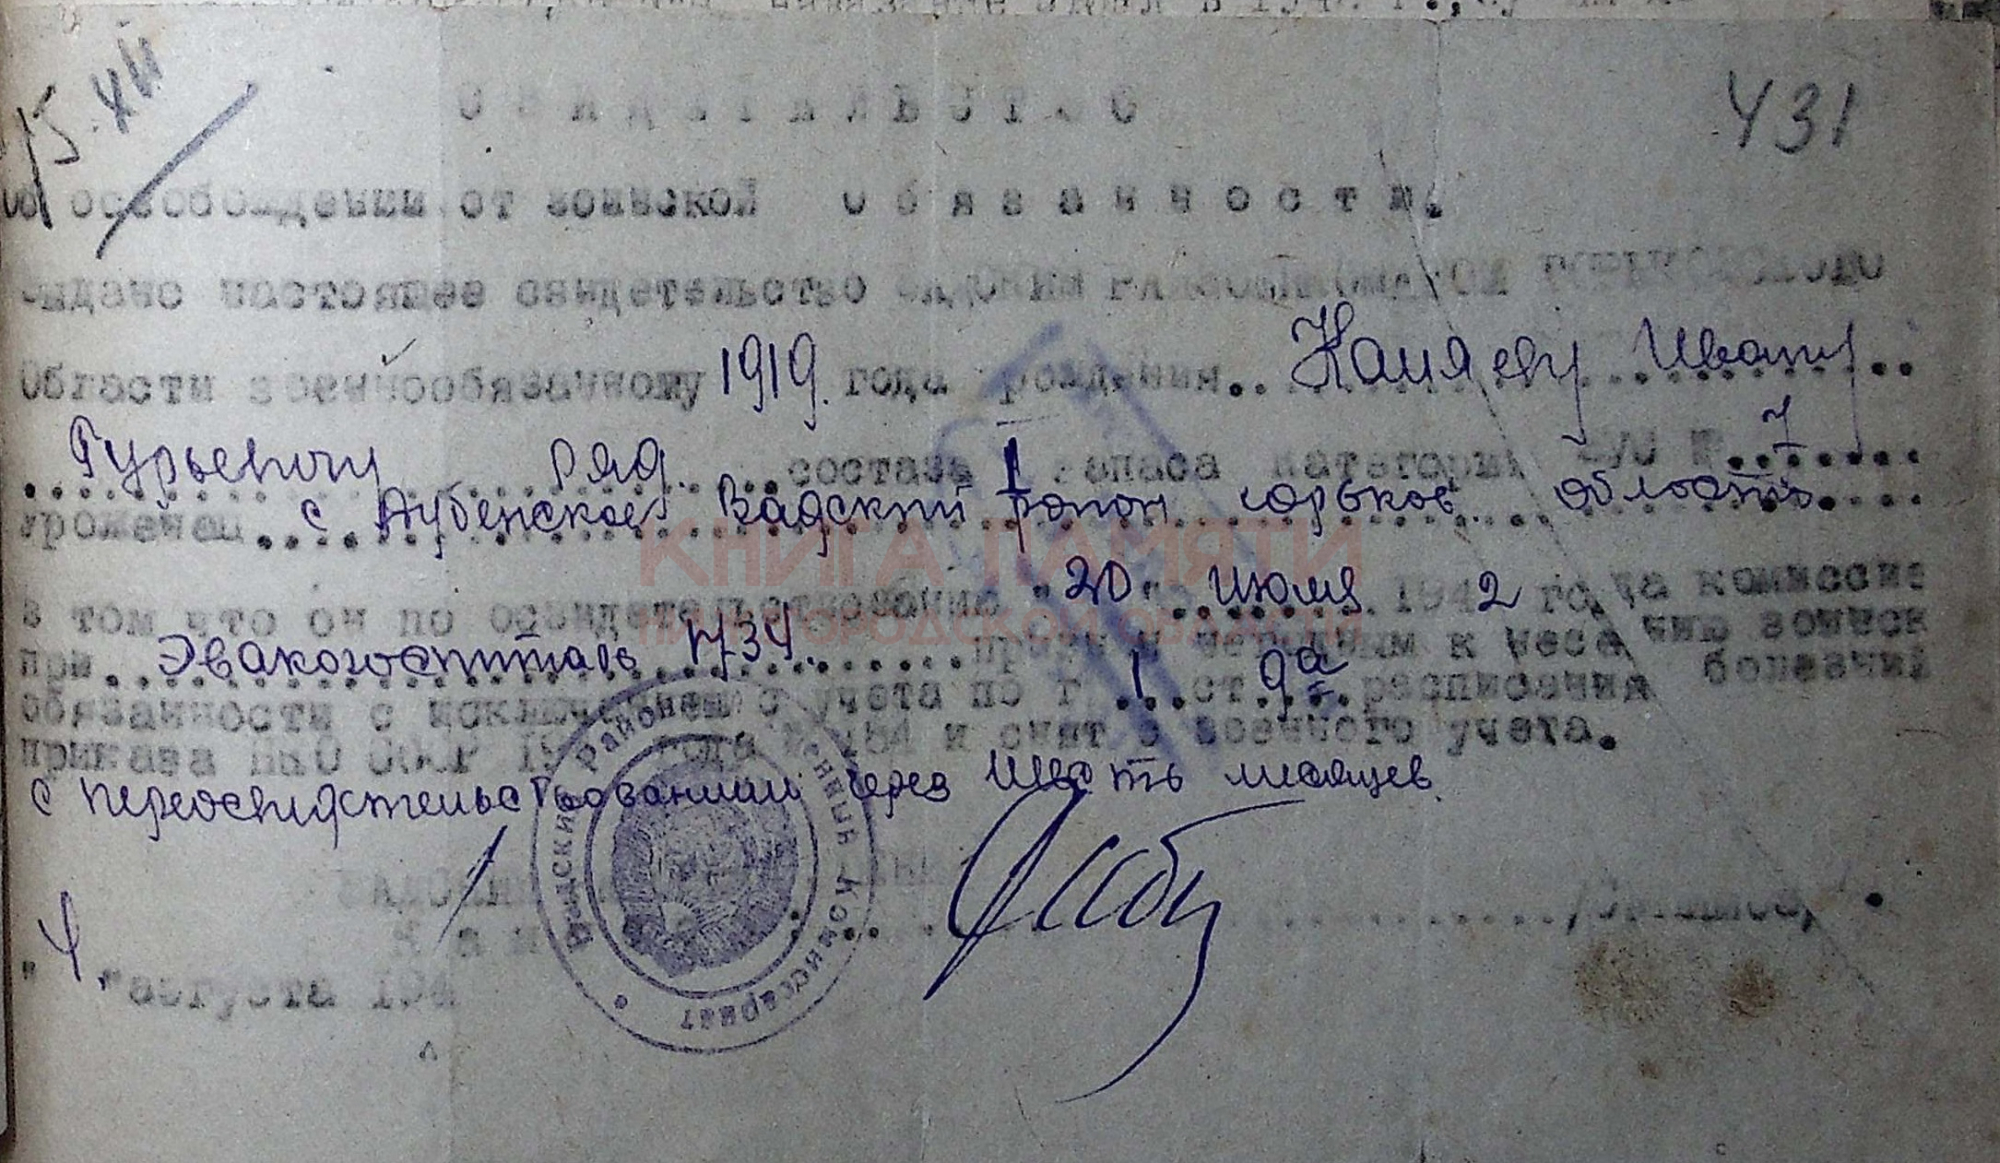 15.XII
431
С В И Д Е Т Е Л Ь С Т В О
об освобождении от воинской о б я з а н н о с т и.
Выдано настоящее свидетельство Вадским Райвоенкоматом Горьковской
Области военнообязанному 1919. года рождения.. Каняеву Ивану
Гурьевичу ряд. состава 1 запаса категории ВУС № 7
уроженец с Дубенское Вадский район Горьков. область.
в том что он по освидетельствованию "20" июля 194 2 года комиссией
при Эвакогоспиталь 1734 признан негодным к несению воинск
обязанности с исключением с учета по гр 1 ст. 9а расписания болезней
приказа НКО СССР 19 года № 184 и снят с военного учета.
с переосвидетельствованием через шесть месяцев.
"4" августа 194
Вадский Районный Военный Комиссариат
КНИГА ПАМЯТИ
НИЖЕГОРОДСКОЙ ОБЛАСТИ